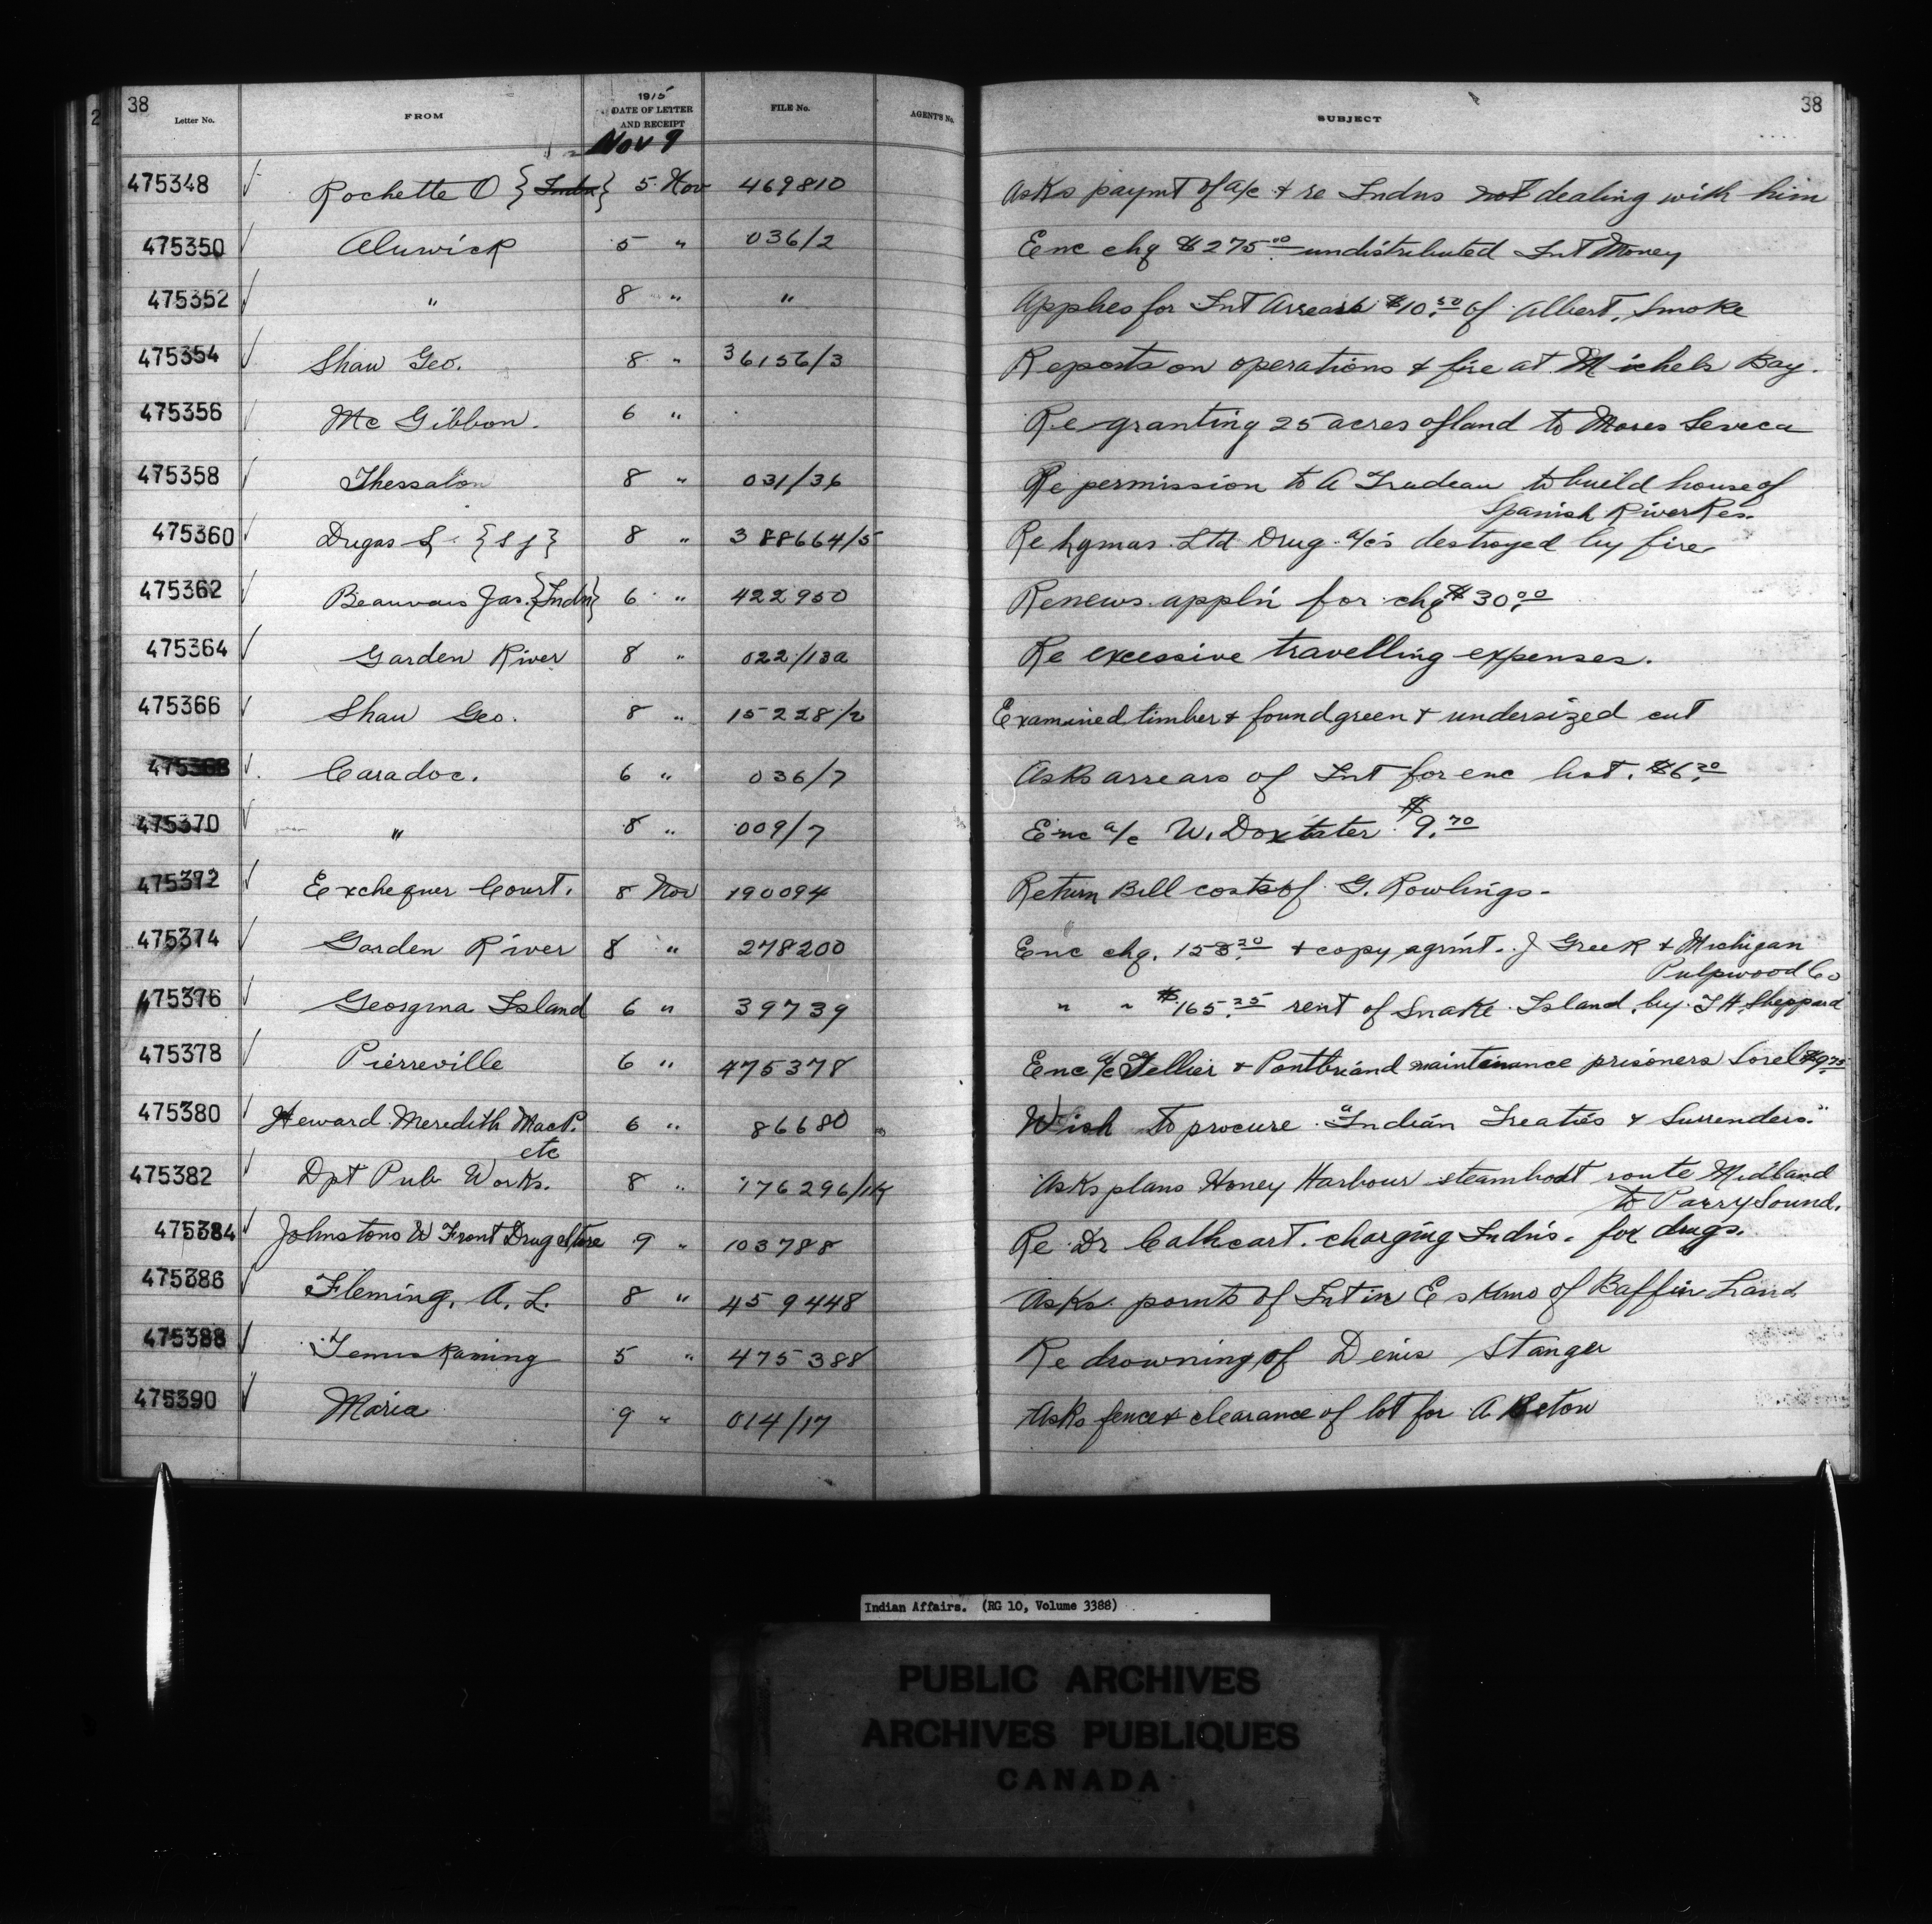 38
Letter No. FROM 1915 DATE OF LETTER AND RECEIPT FILE No. AGENT'S No. SUBJECT 38
Nov 9
475348 Rochette O {Indn} 5 Nov 469810 Asks paymt of a/c & re Indns not dealing with him
475350 Alnwick 5 " 036/2 Enc chq $275.00 undistributed Int Money
475352 " 8 " " Applies for Int Arrears $10.50 of Albert Smoke
475354 Shaw Geo. 8 " 36156/3 Reports on operations & fire at Michels Bay.
475356 Mc Gibbon. 6 " Re granting 25 acres of land to Moses Seneca
475358 Thessalon 8 " 031/36 Re permission to A Trudeau to build house of
Spanish River Res.
475360 Dugas S {S J} 8 " 388664/5 Re Lymas Ltd Drug a/c's destroyed by fire
475362 Beauvais Jas. {Indn} 6 " 422950 Renews appl'n for chq $30.00
475364 Garden River 8 " 022/13a Re excessive travelling expenses.
475366 Shaw Geo. 8 " 15228/2 Examined timber & found green & undersized cut
475368 Caradoc. 6 " 036/7 Asks arrears of Int for enc list. $6.20
475370 " 8 " 009/7 Enc a/c W. Doxtater $9.70
475372 Exchequer Court. 8 Nov 190094 Return Bill costs of G. Rowlings.
475374 Garden River 8 " 278200 Enc chq. & copy agrint. J Greek & Michigan
Pulpwood Co
475376 Georgina Island 6 " 39739 " " $165.25 rent of Snake Island by T H Sheppard
475378 Pierreville 6 " 475378 Enc a/c Tellier & Pontbriand maintenance prisoners Sorel $9.75
475380 Heward Meredith MacP. 6 " 86680 Wish to procure "Indian Treaties & Surrenders."
etc
475382 Dpt Pub Works. 8 " 176296/1K Asks plans Honey Harbour steamboat route Midland
to Parry Sound.
475384 Johnstons W Front Drugstore 9 " 103788 Re Dr Cathcart. charging Indn's. for drugs.
475386 Fleming, A. L. 8 " 459448 Asks points of Int in Eskimo of Baffin Land
475388 Temiskaming 5 " 475388 Re drowning of Denis Stanger
475390 Maria 9 " 014/17 Asks fence & clearance of lot for A
Indian Affairs. (RG 10, Volume 3388)
PUBLIC ARCHIVES
ARCHIVES PUBLIQUES
CANADA